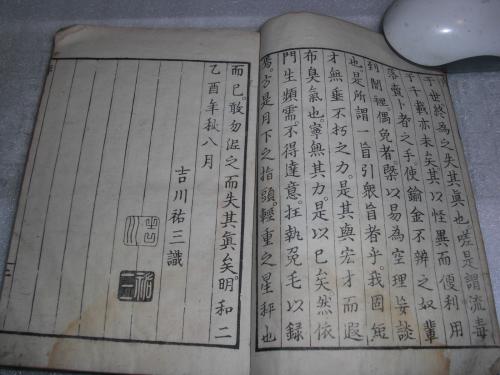 于世終為之失其眞也嗟是謂流毒
于千載亦未矣其以怪異而便利用
落賣卜者之手使鍮金不辨之奴輩
到闇裡偶兔者槩以易為空理妄談
也是所謂一盲引衆盲者乎我固短
才無垂不朽之力是其與宏才而遐
布臭氣也。寧無其力。是以已矣然依
門生頻需。不得達意。抂執兔毛以録
焉。方是月下之指頭。輕重之星秤也
而已。敢勿泥之而失其眞矣。明和二
乙酉年秋八月
吉川祐三識
吉川
祐三